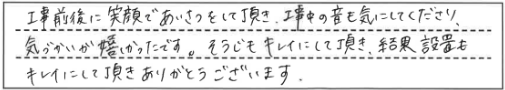 工事前後に笑顔であいさつをして頂き、工事中の音も気にしてくださり、
気づかいが嬉しかったです。そうじもキレイにして頂き、結果設置も
キレイにして頂きありがとうございます.